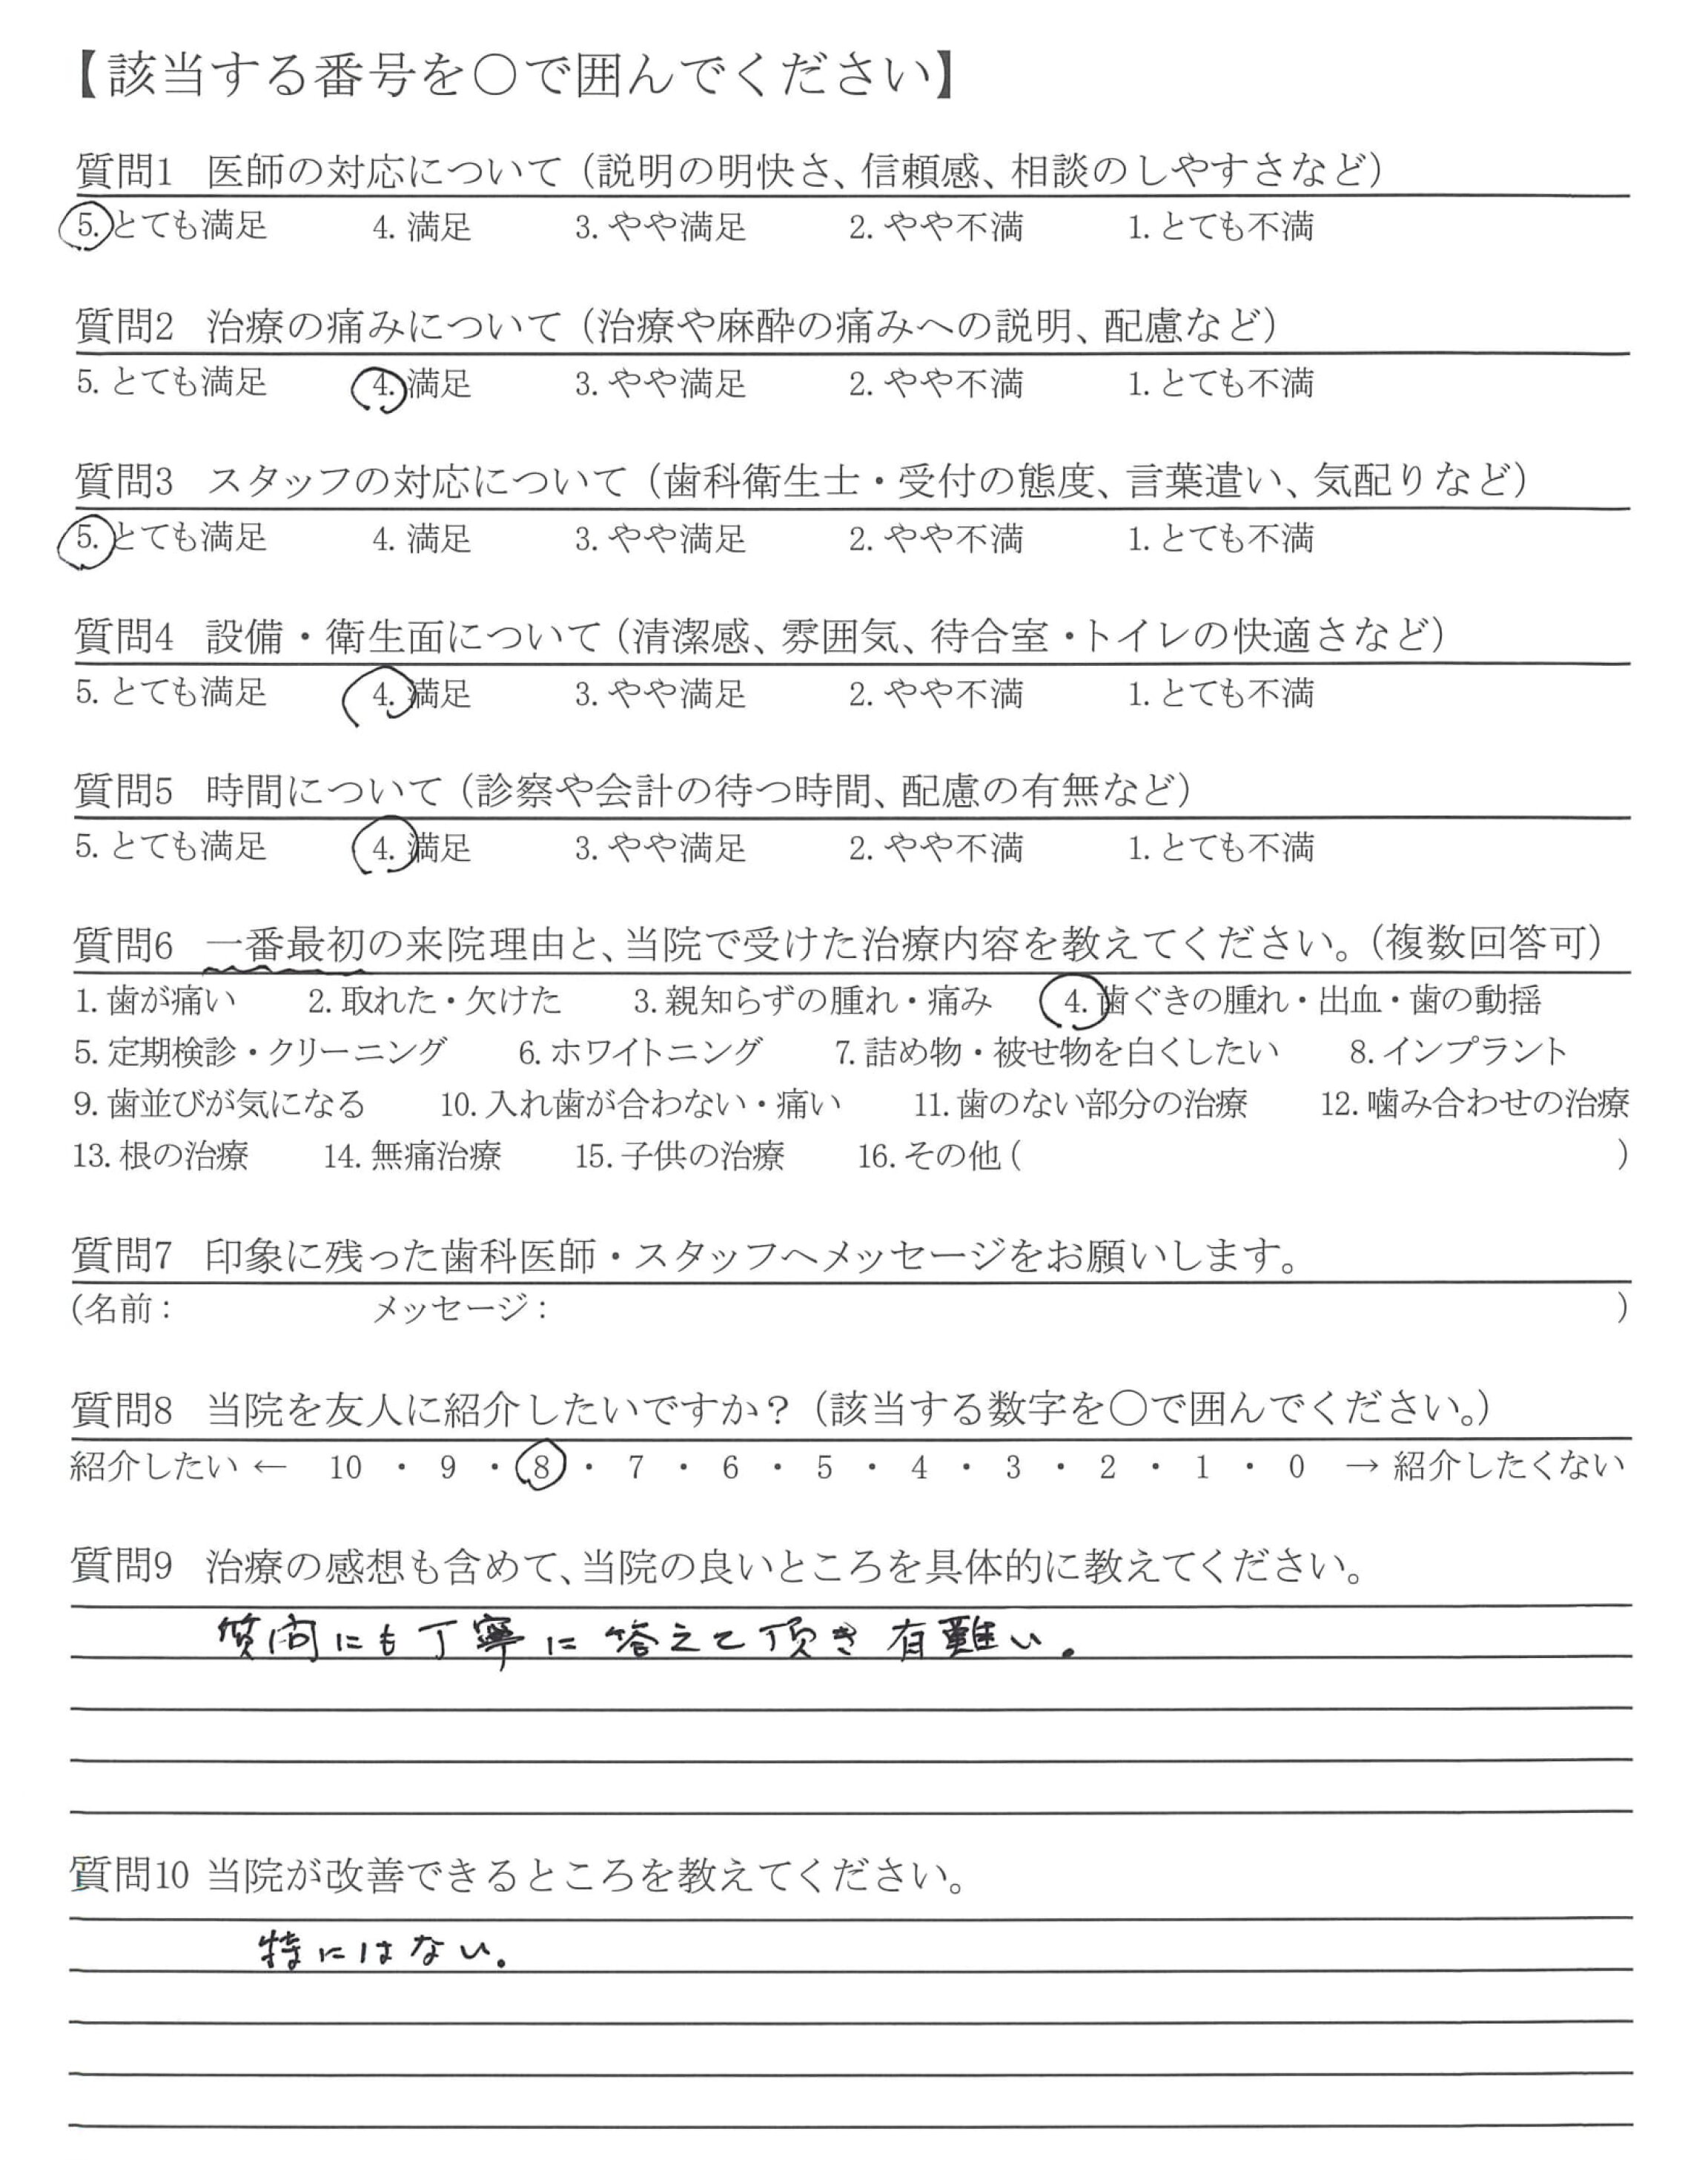 【該当する番号を○で囲んでください】
質問1 医師の対応について（説明の明快さ、信頼感、相談のしやすさなど）
5. とても満足 4. 満足 3. やや満足 2. やや不満 1. とても不満
質問2 治療の痛みについて（治療や麻酔の痛みへの説明、配慮など）
5. とても満足 4. 満足 3. やや満足 2. やや不満 1. とても不満
質問3 スタッフの対応について（歯科衛生士・受付の態度、言葉遣い、気配りなど）
5. とても満足 4. 満足 3. やや満足 2. やや不満 1. とても不満
質問4 設備・衛生面について（清潔感、雰囲気、待合室・トイレの快適さなど）
5. とても満足 4. 満足 3. やや満足 2. やや不満 1. とても不満
質問5 時間について（診察や会計の待つ時間、配慮の有無など）
5. とても満足 4. 満足 3. やや満足 2. やや不満 1. とても不満
質問6 一番最初の来院理由と、当院で受けた治療内容を教えてください。（複数回答可）
1. 歯が痛い 2. 取れた・欠けた 3. 親知らずの腫れ・痛み 4. 歯ぐきの腫れ・出血・歯の動揺
5. 定期検診・クリーニング 6. ホワイトニング 7. 詰め物・被せ物を白くしたい 8. インプラント
9. 歯並びが気になる 10. 入れ歯が合わない・痛い 11. 歯のない部分の治療 12. 噛み合わせの治療
13. 根の治療 14. 無痛治療 15. 子供の治療 16. その他 ( )
質問7 印象に残った歯科医師・スタッフへメッセージをお願いします。
(名前： メッセージ： )
質問8 当院を友人に紹介したいですか？（該当する数字を○で囲んでください。）
紹介したい ← 10 ・ 9 ・ 8 ・ 7 ・ 6 ・ 5 ・ 4 ・ 3 ・ 2 ・ 1 ・ 0 → 紹介したくない
質問9 治療の感想も含めて、当院の良いところを具体的に教えてください。
質問にも丁寧に答えて頂き有難い。
質問10 当院が改善できるところを教えてください。
特にはない。